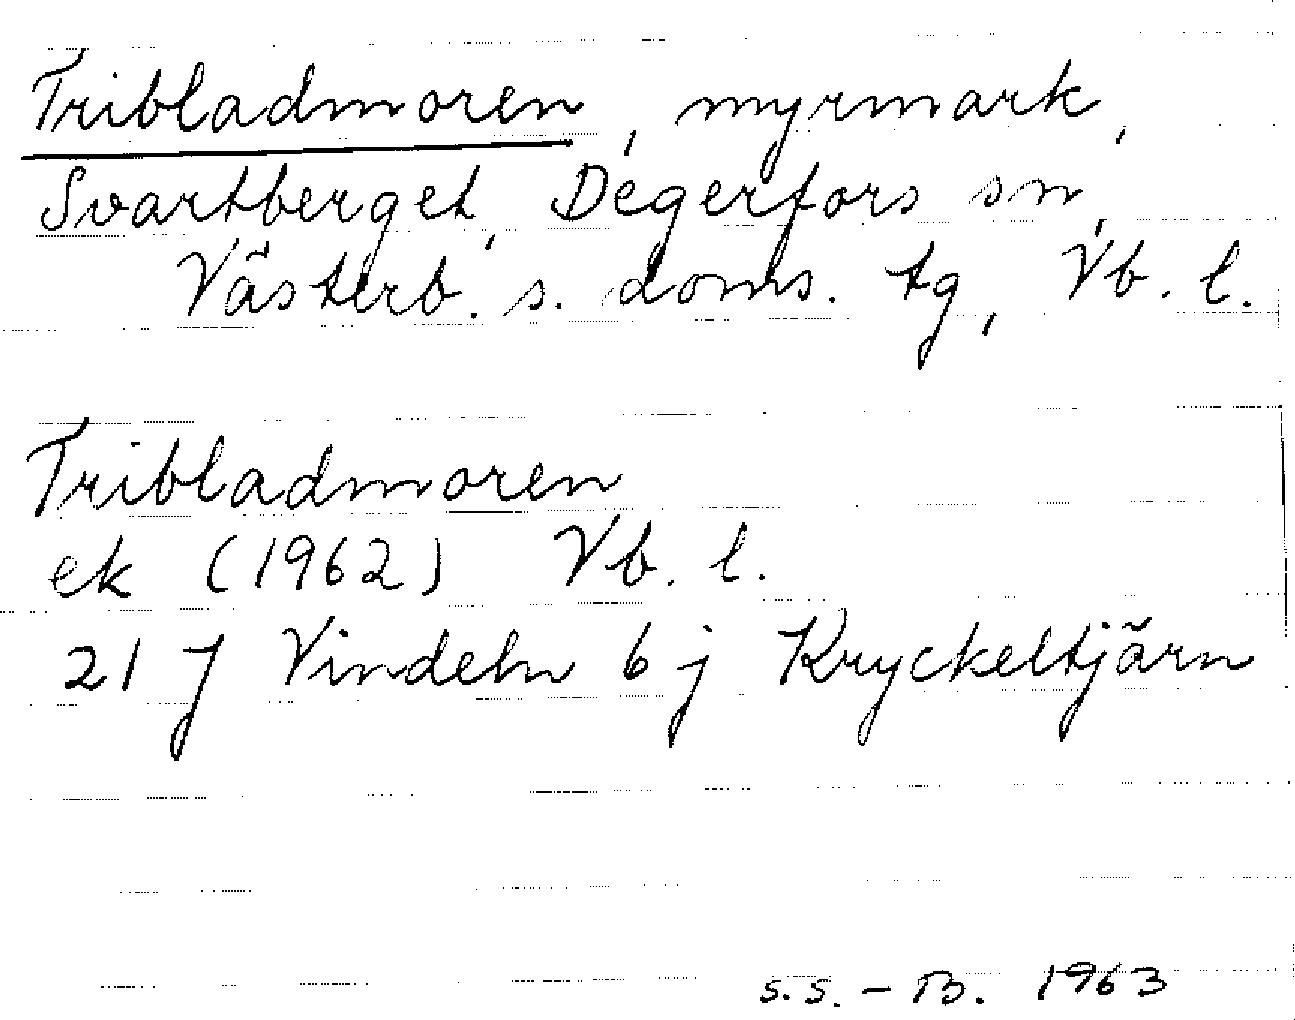 Tribladmoren, myrmark,
Svartberget, Degerfors sn,
Västerb. s. doms. tg, Vb. l.
Tribladmoren
ek (1962) Vb. l.
21 J Vindeln 6 j Kryckeltjärn
s.s. – B. 1963